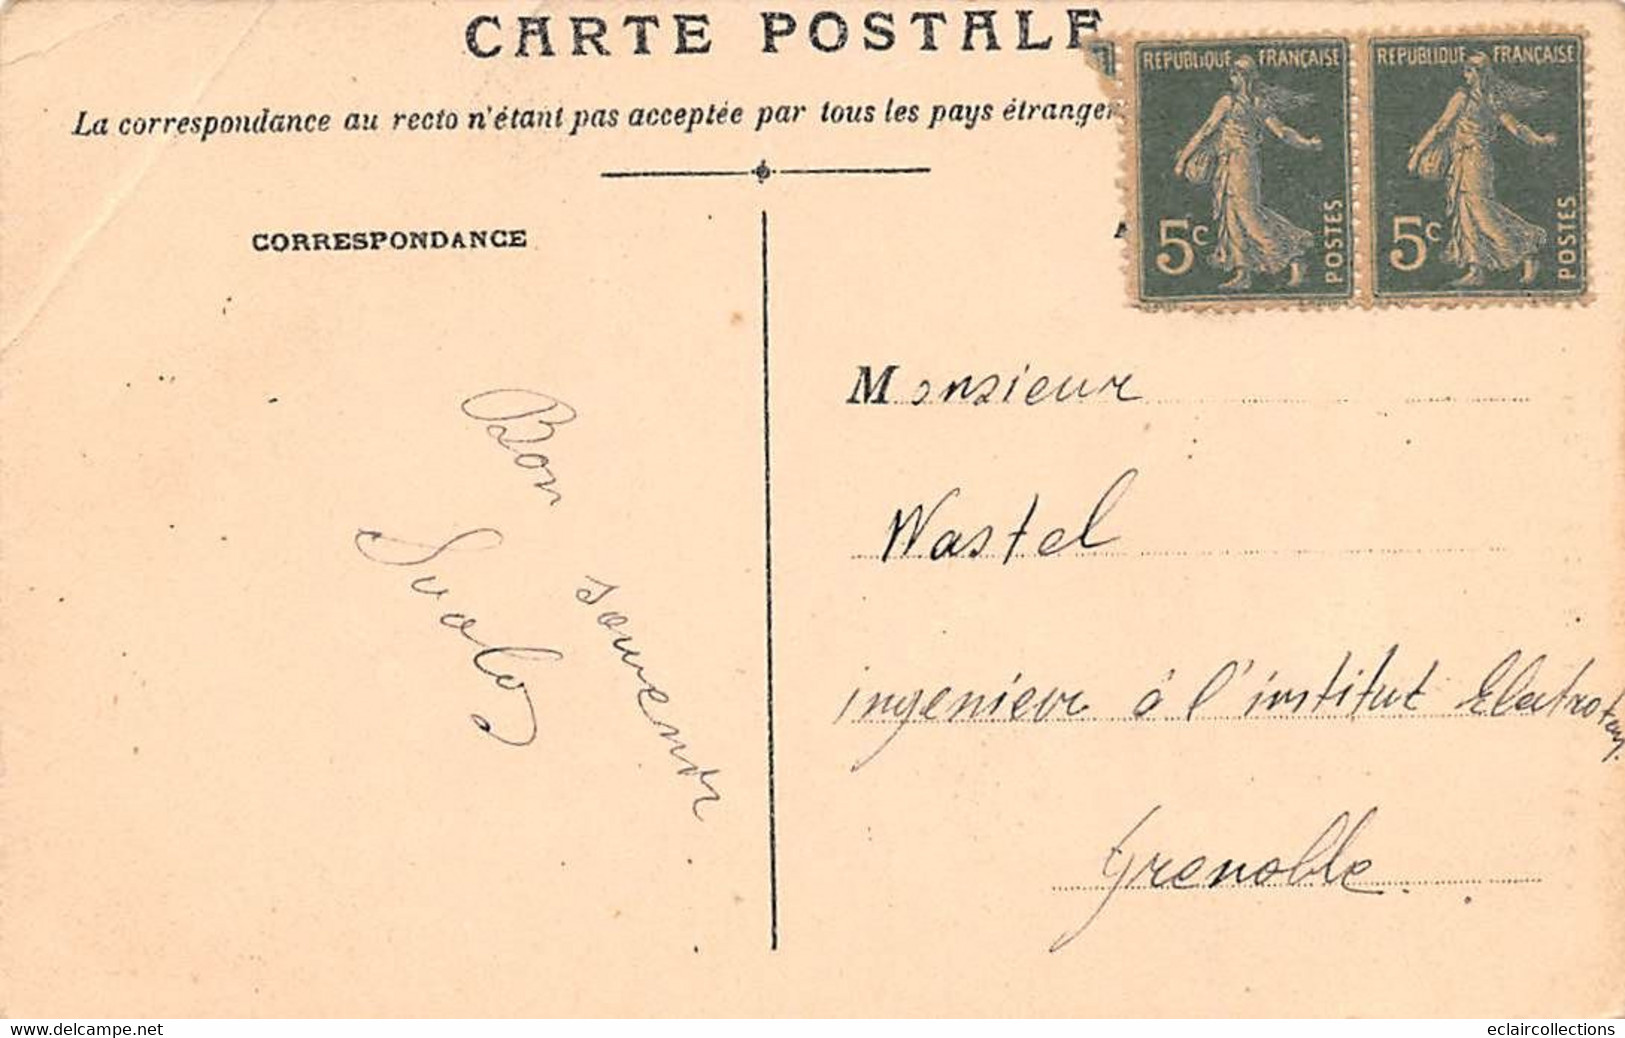 CARTE POSTALE
La correspondance au recto n'étant pas acceptée par tous les pays étranger
REPUBLIQUE FRANÇAISE
5c
POSTES
REPUBLIQUE FRANÇAISE
5c
POSTES
CORRESPONDANCE
Bon
souvenir
Monsieur
Wastel
ingenieur à l'institut Electrotec.
Grenoble
www.delcampe.net
eclaircollections